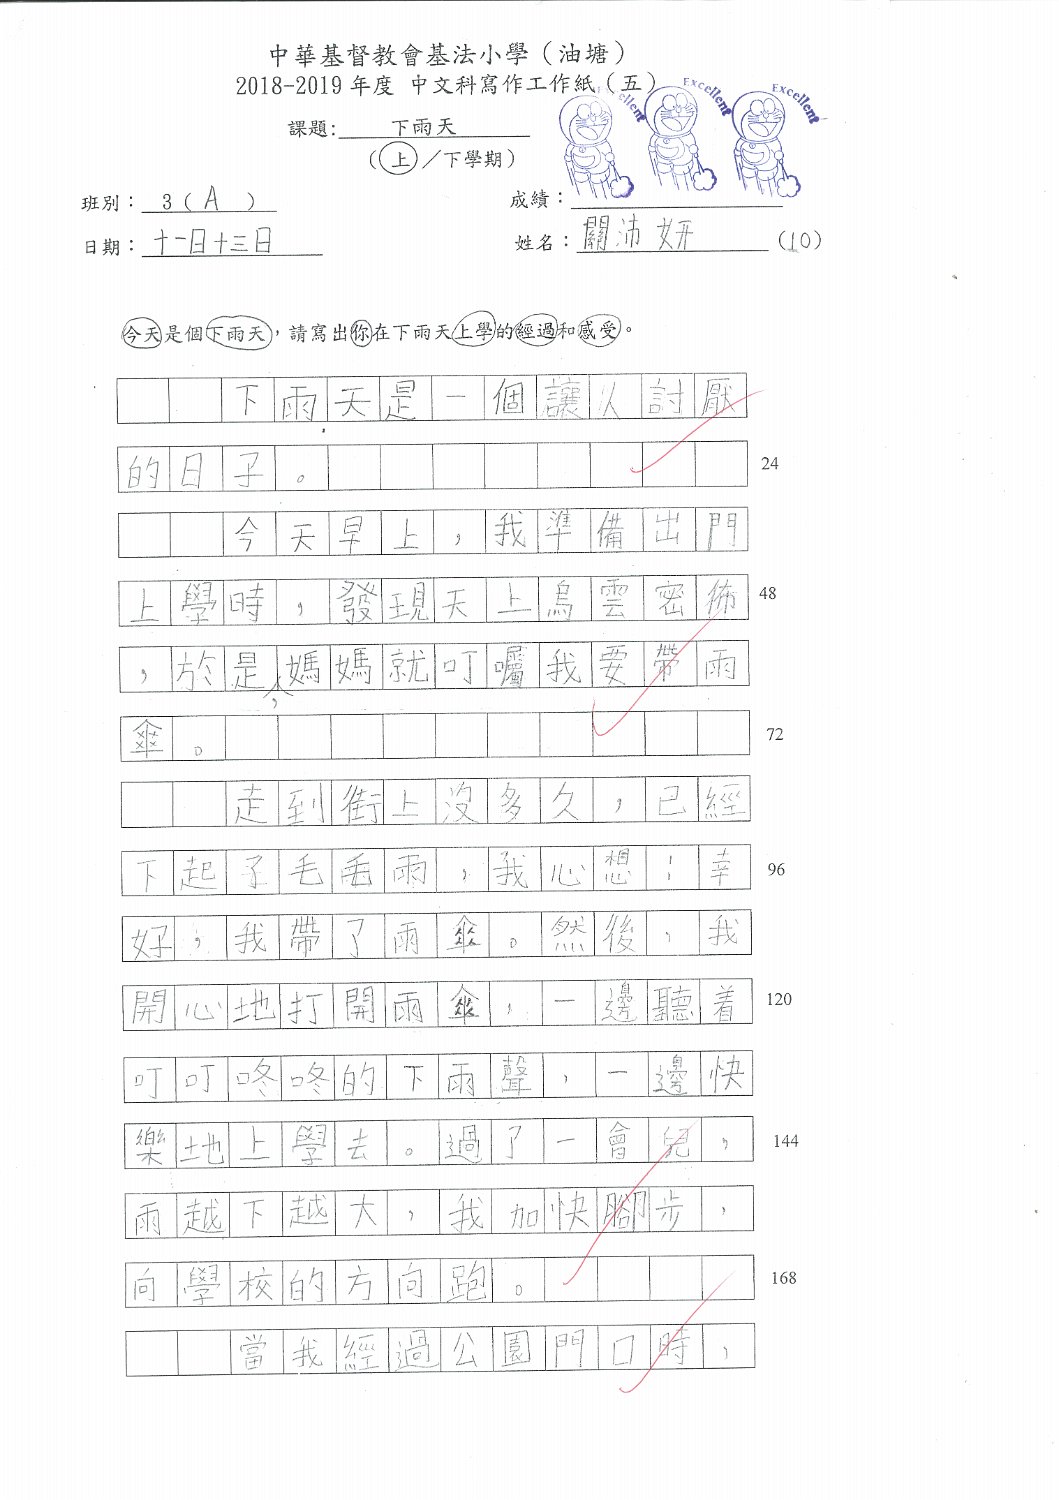 中華基督教會基法小學（油塘）
2018-2019 年度 中文科寫作工作紙（五）
Excellent Excellent Excellent
課題:下雨天
（上／下學期）
班別：3（A） 成績：
日期：十一日十三日 姓名：關沛妍（10）
今天是個下雨天，請寫出你在下雨天上學的經過和感受。
下雨天是一個讓人討厭
的日子。 24
今天早上，我準備出門
上學時，發現天上烏雲密佈 48
，於是，媽媽就叮囑我要帶雨
傘。 72
走到街上沒多久，已經
下起了毛毛雨，我心想：幸 96
好，我帶了雨傘。然後，我
開心地打開雨傘，一邊聽着 120
叮叮咚咚的下雨聲，一邊快
樂地上學去。過了一會兒， 144
雨越下越大，我加快腳步，
向學校的方向跑。 168
當我經過公園門口時，